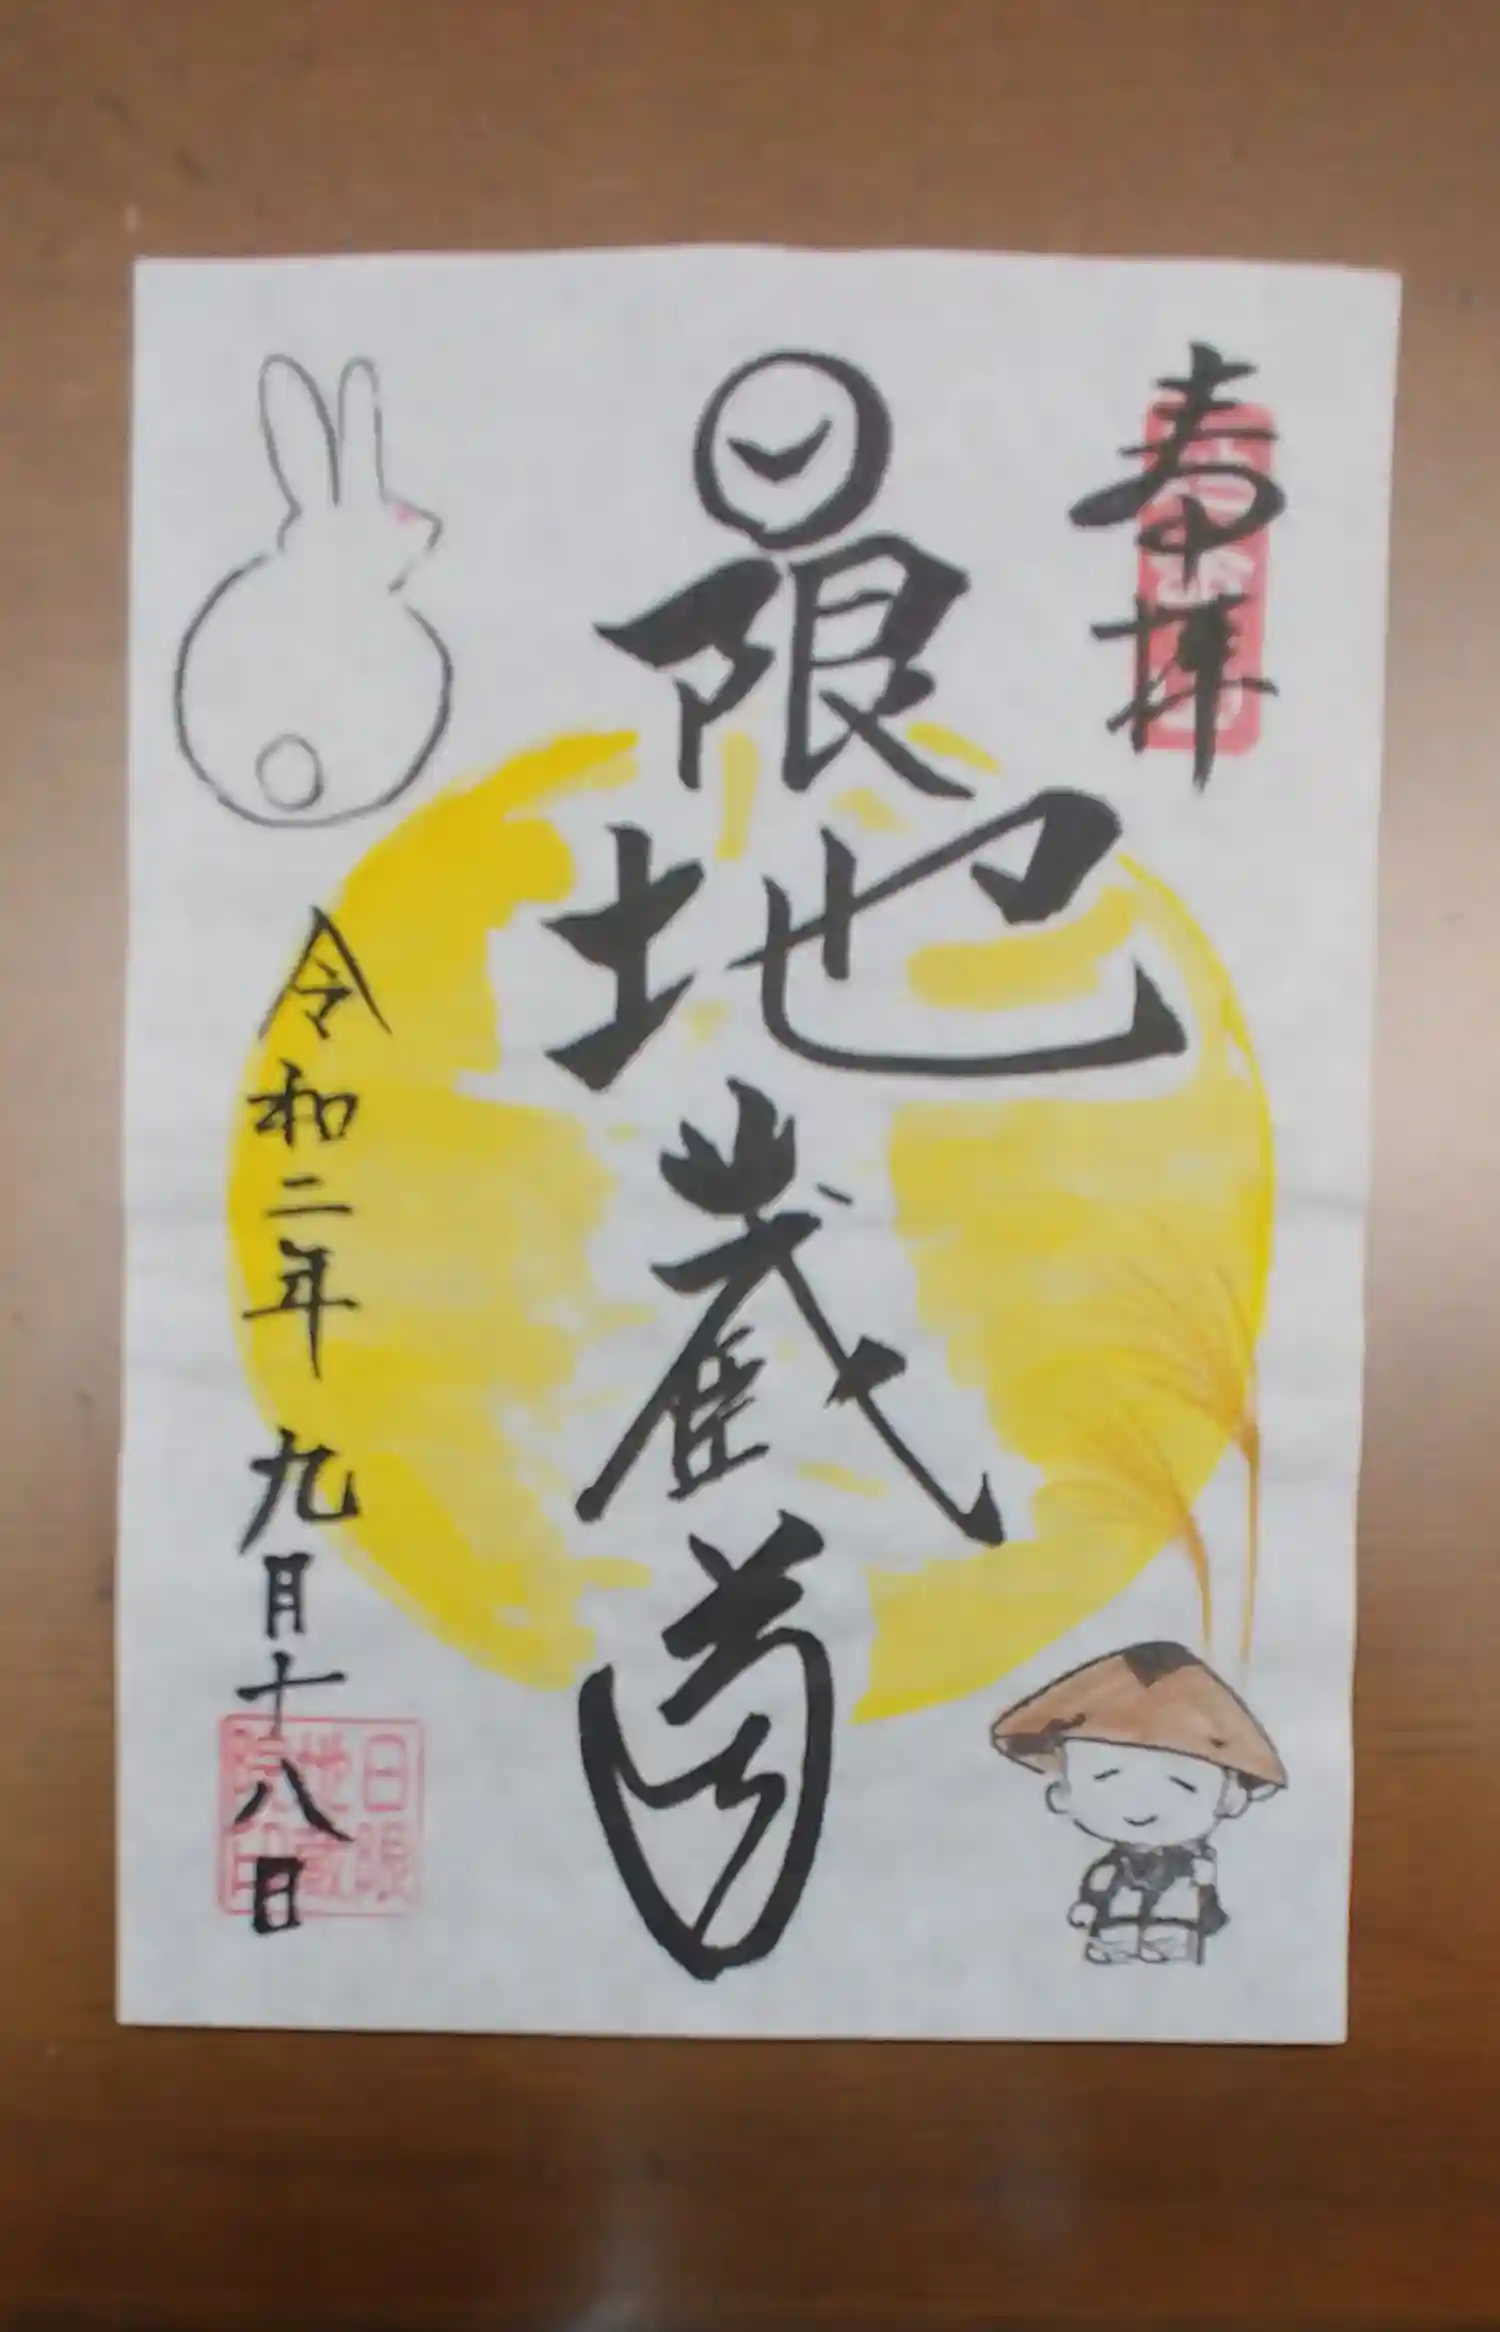 奉拝
日限地蔵尊
令和二年 九月十八日
日限
地蔵
院印